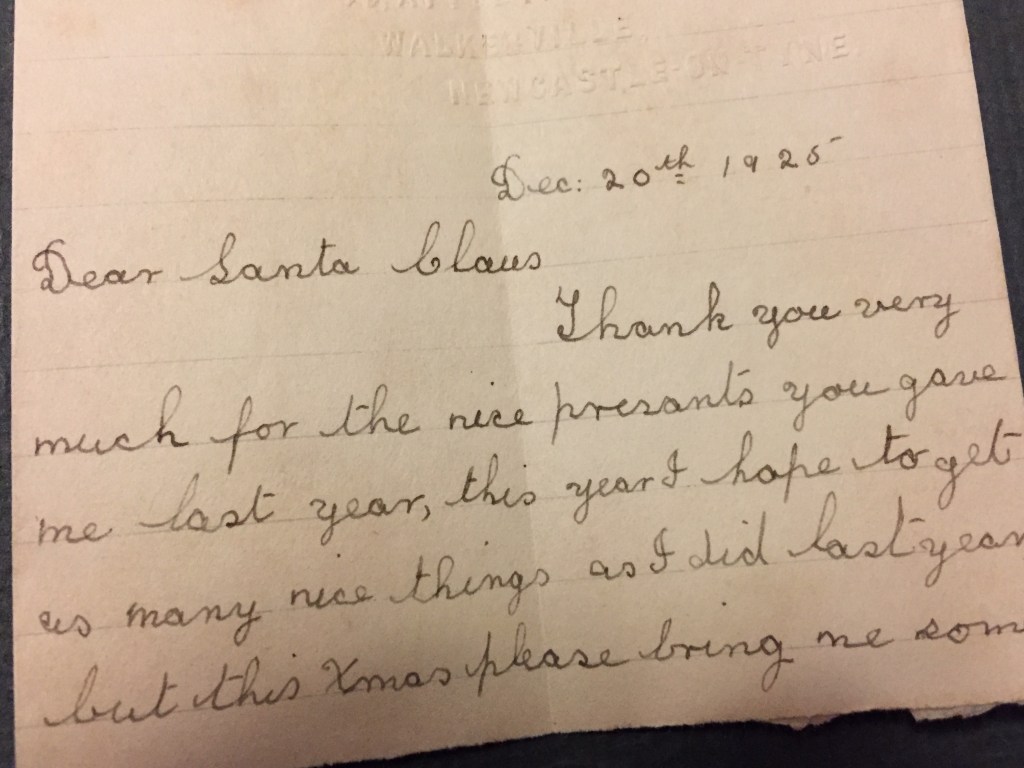 WALKERVILLE.
NEWCASTLE-ON-TYNE.
Dec: 20th 1925
Dear Santa Claus
Thank you very
much for the nice presants you gave
me last year, this year I hope to get
as many nice things as I did last year
but this Xmas please bring me som